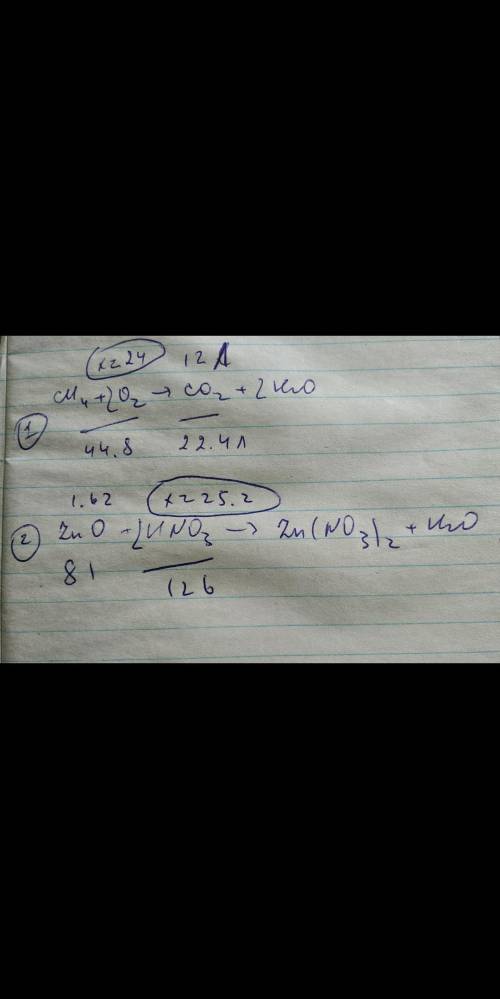 x=24 12 Л
CH4 + 2O2 → CO2 + 2H2O
1
44.8 22.4 л
1.62 x=25.2
2 ZnO + 2HNO3 → Zn(NO3)2 + H2O
81 126